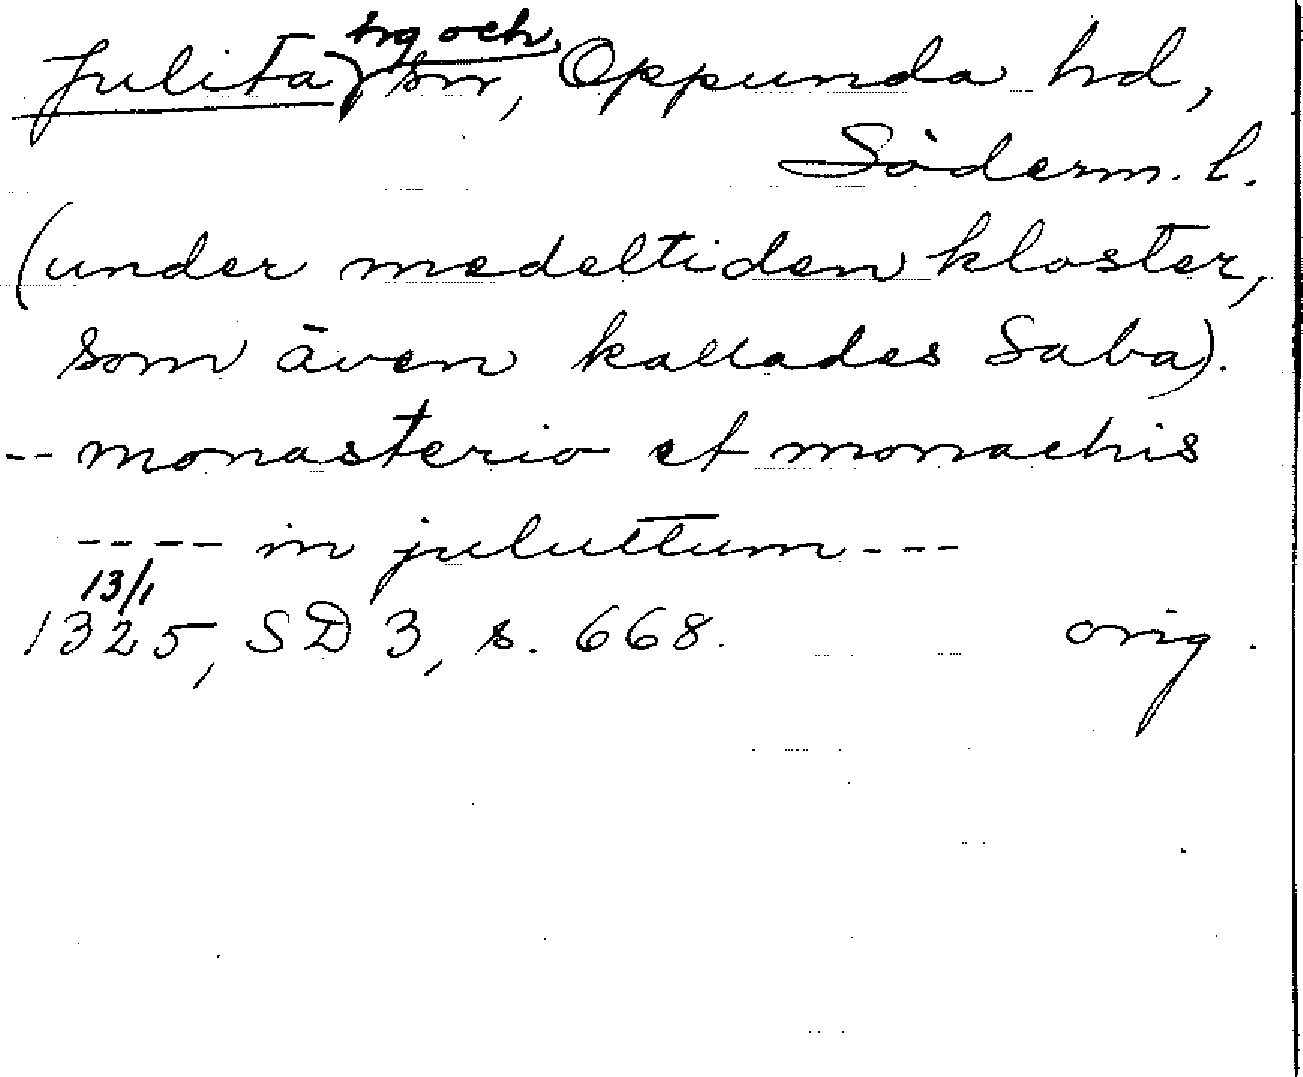 Julita hg och sn, Oppunda hd,
Söderm. l.
(under medeltiden kloster,
som även kallades Saba).
-- monasterio et monachis
---- in juluttum ---
13/1
1325, SD 3, s. 668. orig.